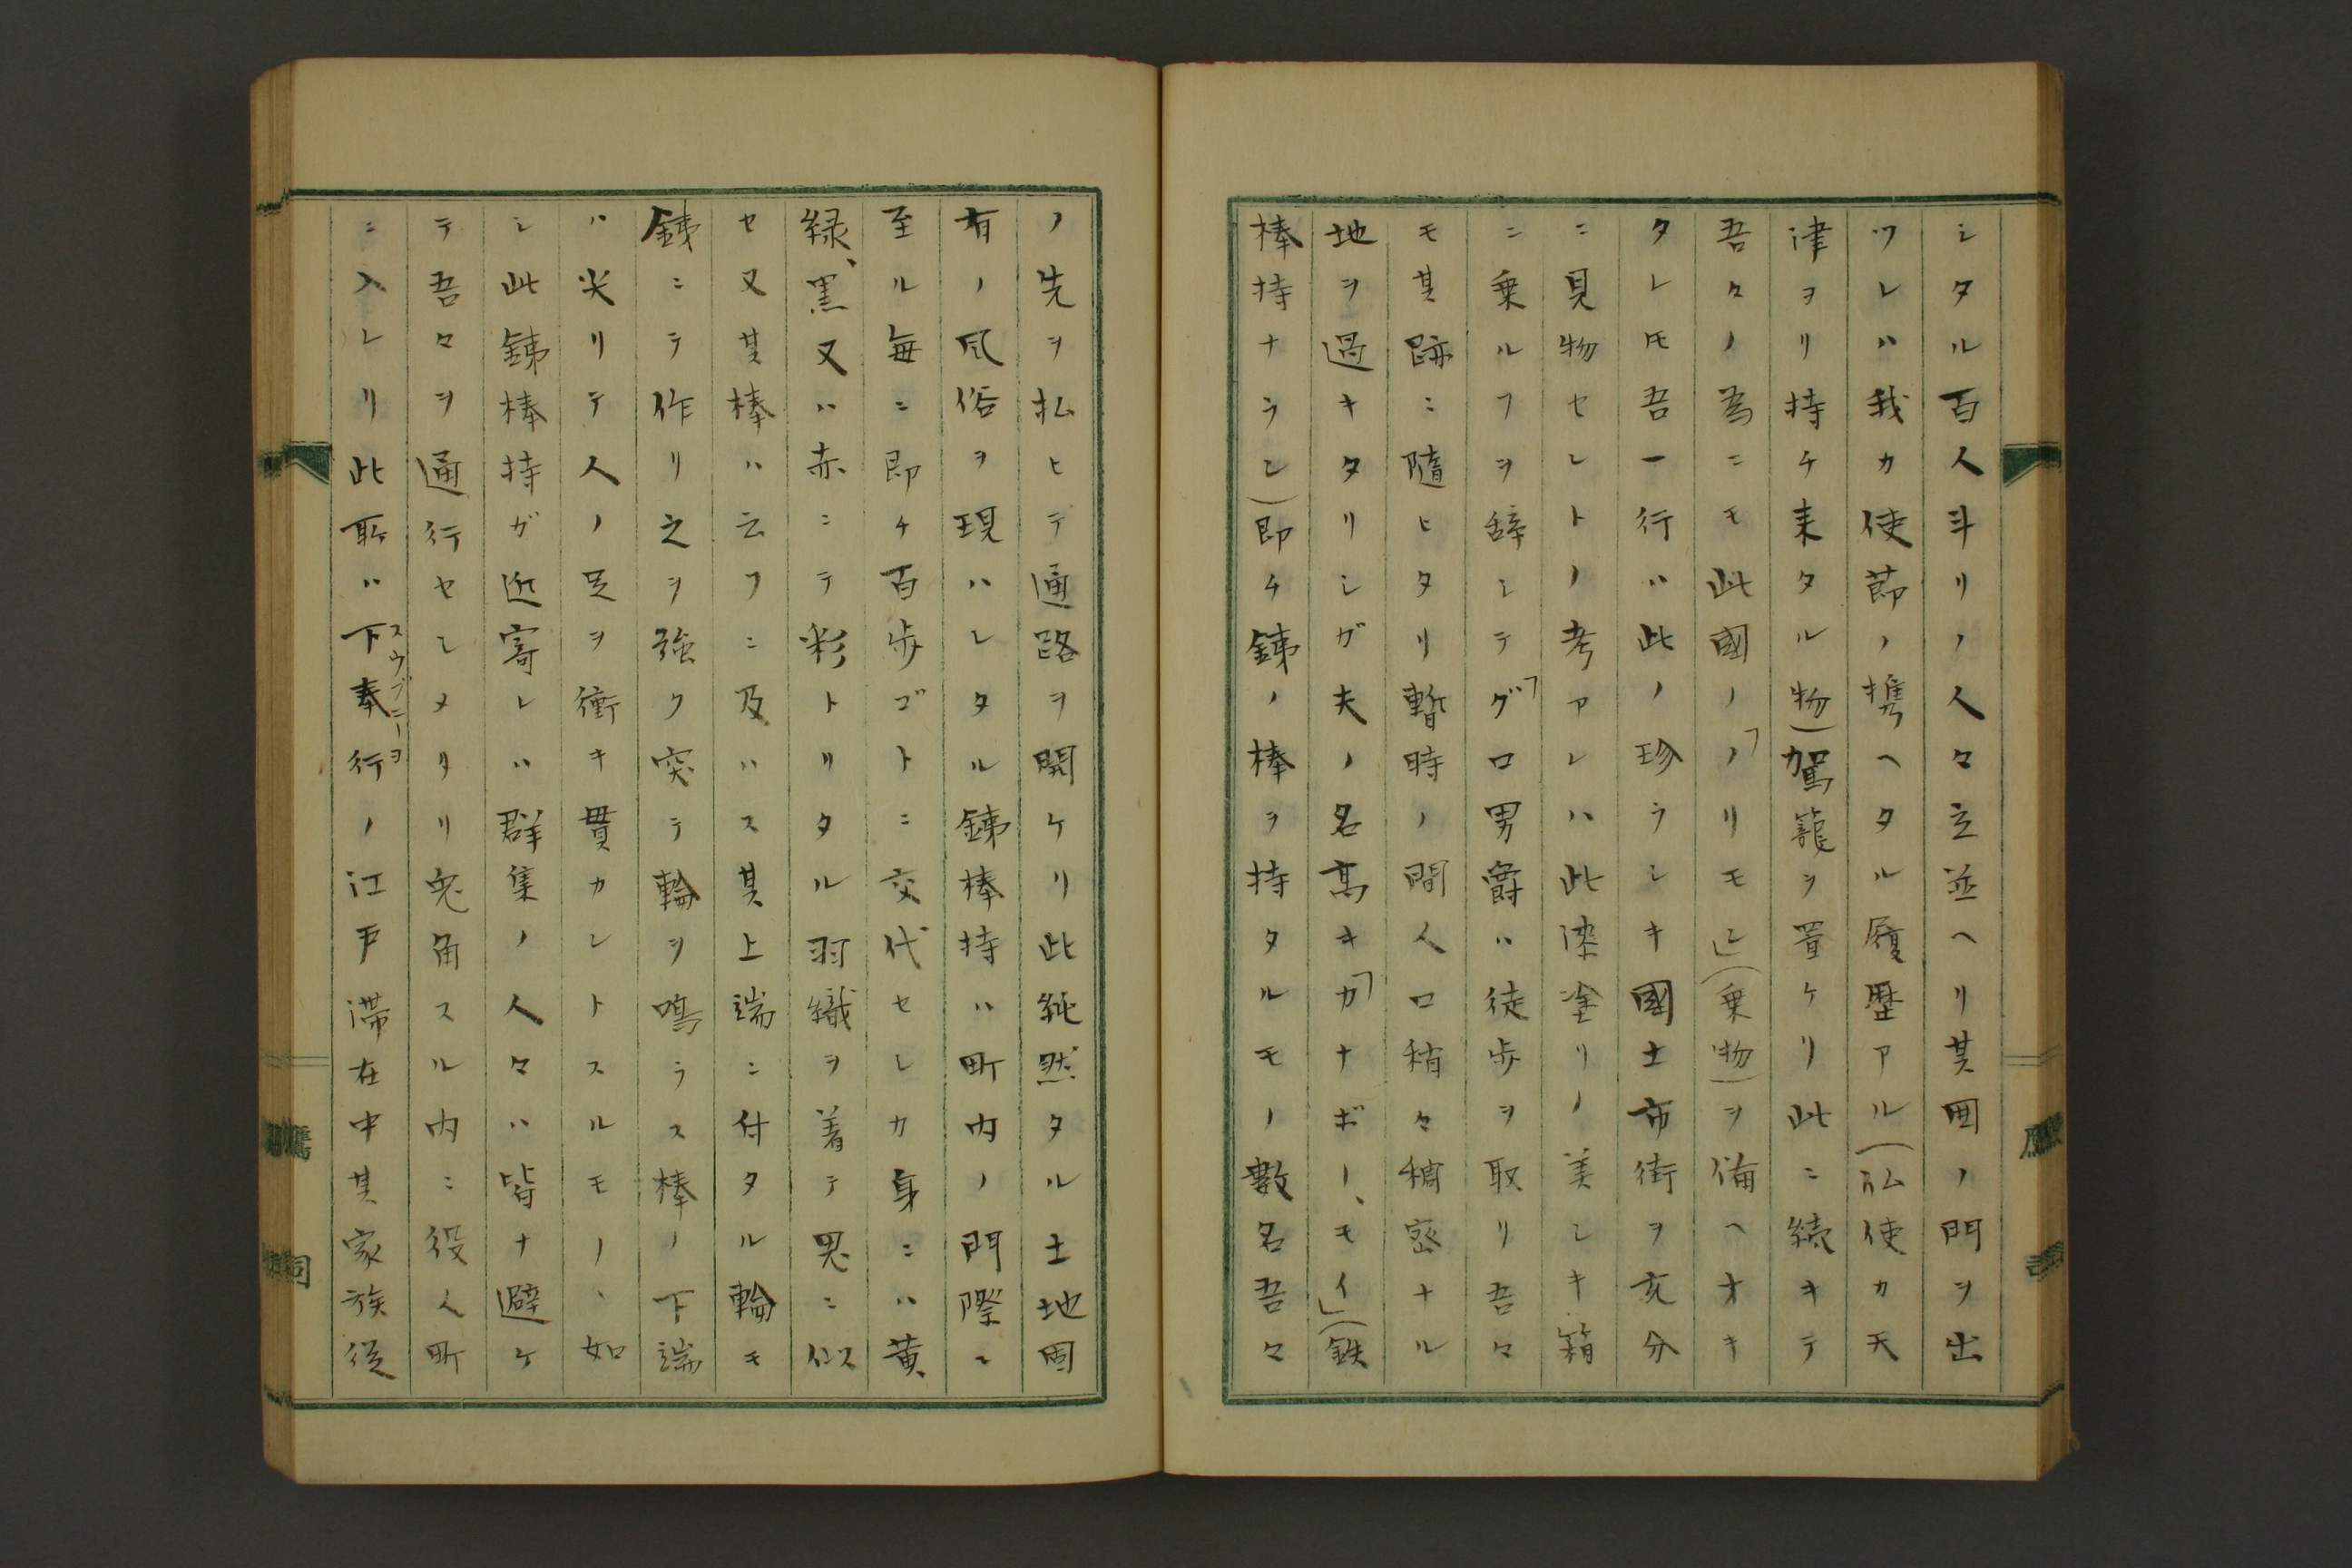 シタル百人斗リノ人々立並ヘリ其囲ノ門ヲ出
ツレハ我カ使節ノ携ヘタル履歴アル(仏使カ天
津ヨリ持チ来タル物)駕籠ヲ置ケリ此ニ続キテ
吾々ノ為ニモ此國ノ「ノリモン」(乗物)ヲ備ヘオキ
タレ𪜈吾一行ハ此ノ珍ラシキ國土市街ヲ充分
ニ見物セントノ考アレハ此漆塗リノ美シキ箱
ニ乗ルヿヲ辞シテ「グロ男爵ハ徒歩ヲ取リ吾々
モ其跡ニ隨ヒタリ暫時ノ間人口稍々稠密ナル
地ヲ過キタリシガ夫ノ名高キ「カナボー、モイ」(鉄
棒持ナラン)即チ銕ノ棒ヲ持タルモノ數名吾々
ノ先ヲ払ヒテ通路ヲ開ケリ此純然タル土地固
有ノ風俗ヲ現ハシタル銕棒持ハ町内ノ門際ニ
至ル毎ニ即チ百歩ゴトニ交代セシカ身ニハ黄、
緑、黒又ハ赤ニテ彩トリタル羽織ヲ着テ思ニ似
セ又其棒ハ云フニ及ハス其上端ニ付タル輪モ
銕ニテ作リ之ヲ強ク突テ輪ヲ鳴ラス棒ノ下端
ハ尖リテ人ノ足ヲ衝キ貫カントスルモノヽ如
シ此銕棒持ガ近寄レハ群集ノ人々ハ皆ナ避ケ
テ吾々ヲ通行セシメタリ兎角スル内ニ役人町
ニ入レリ此所ハ下奉行ノ江戸滞在中其家族従
スウブニーヨ